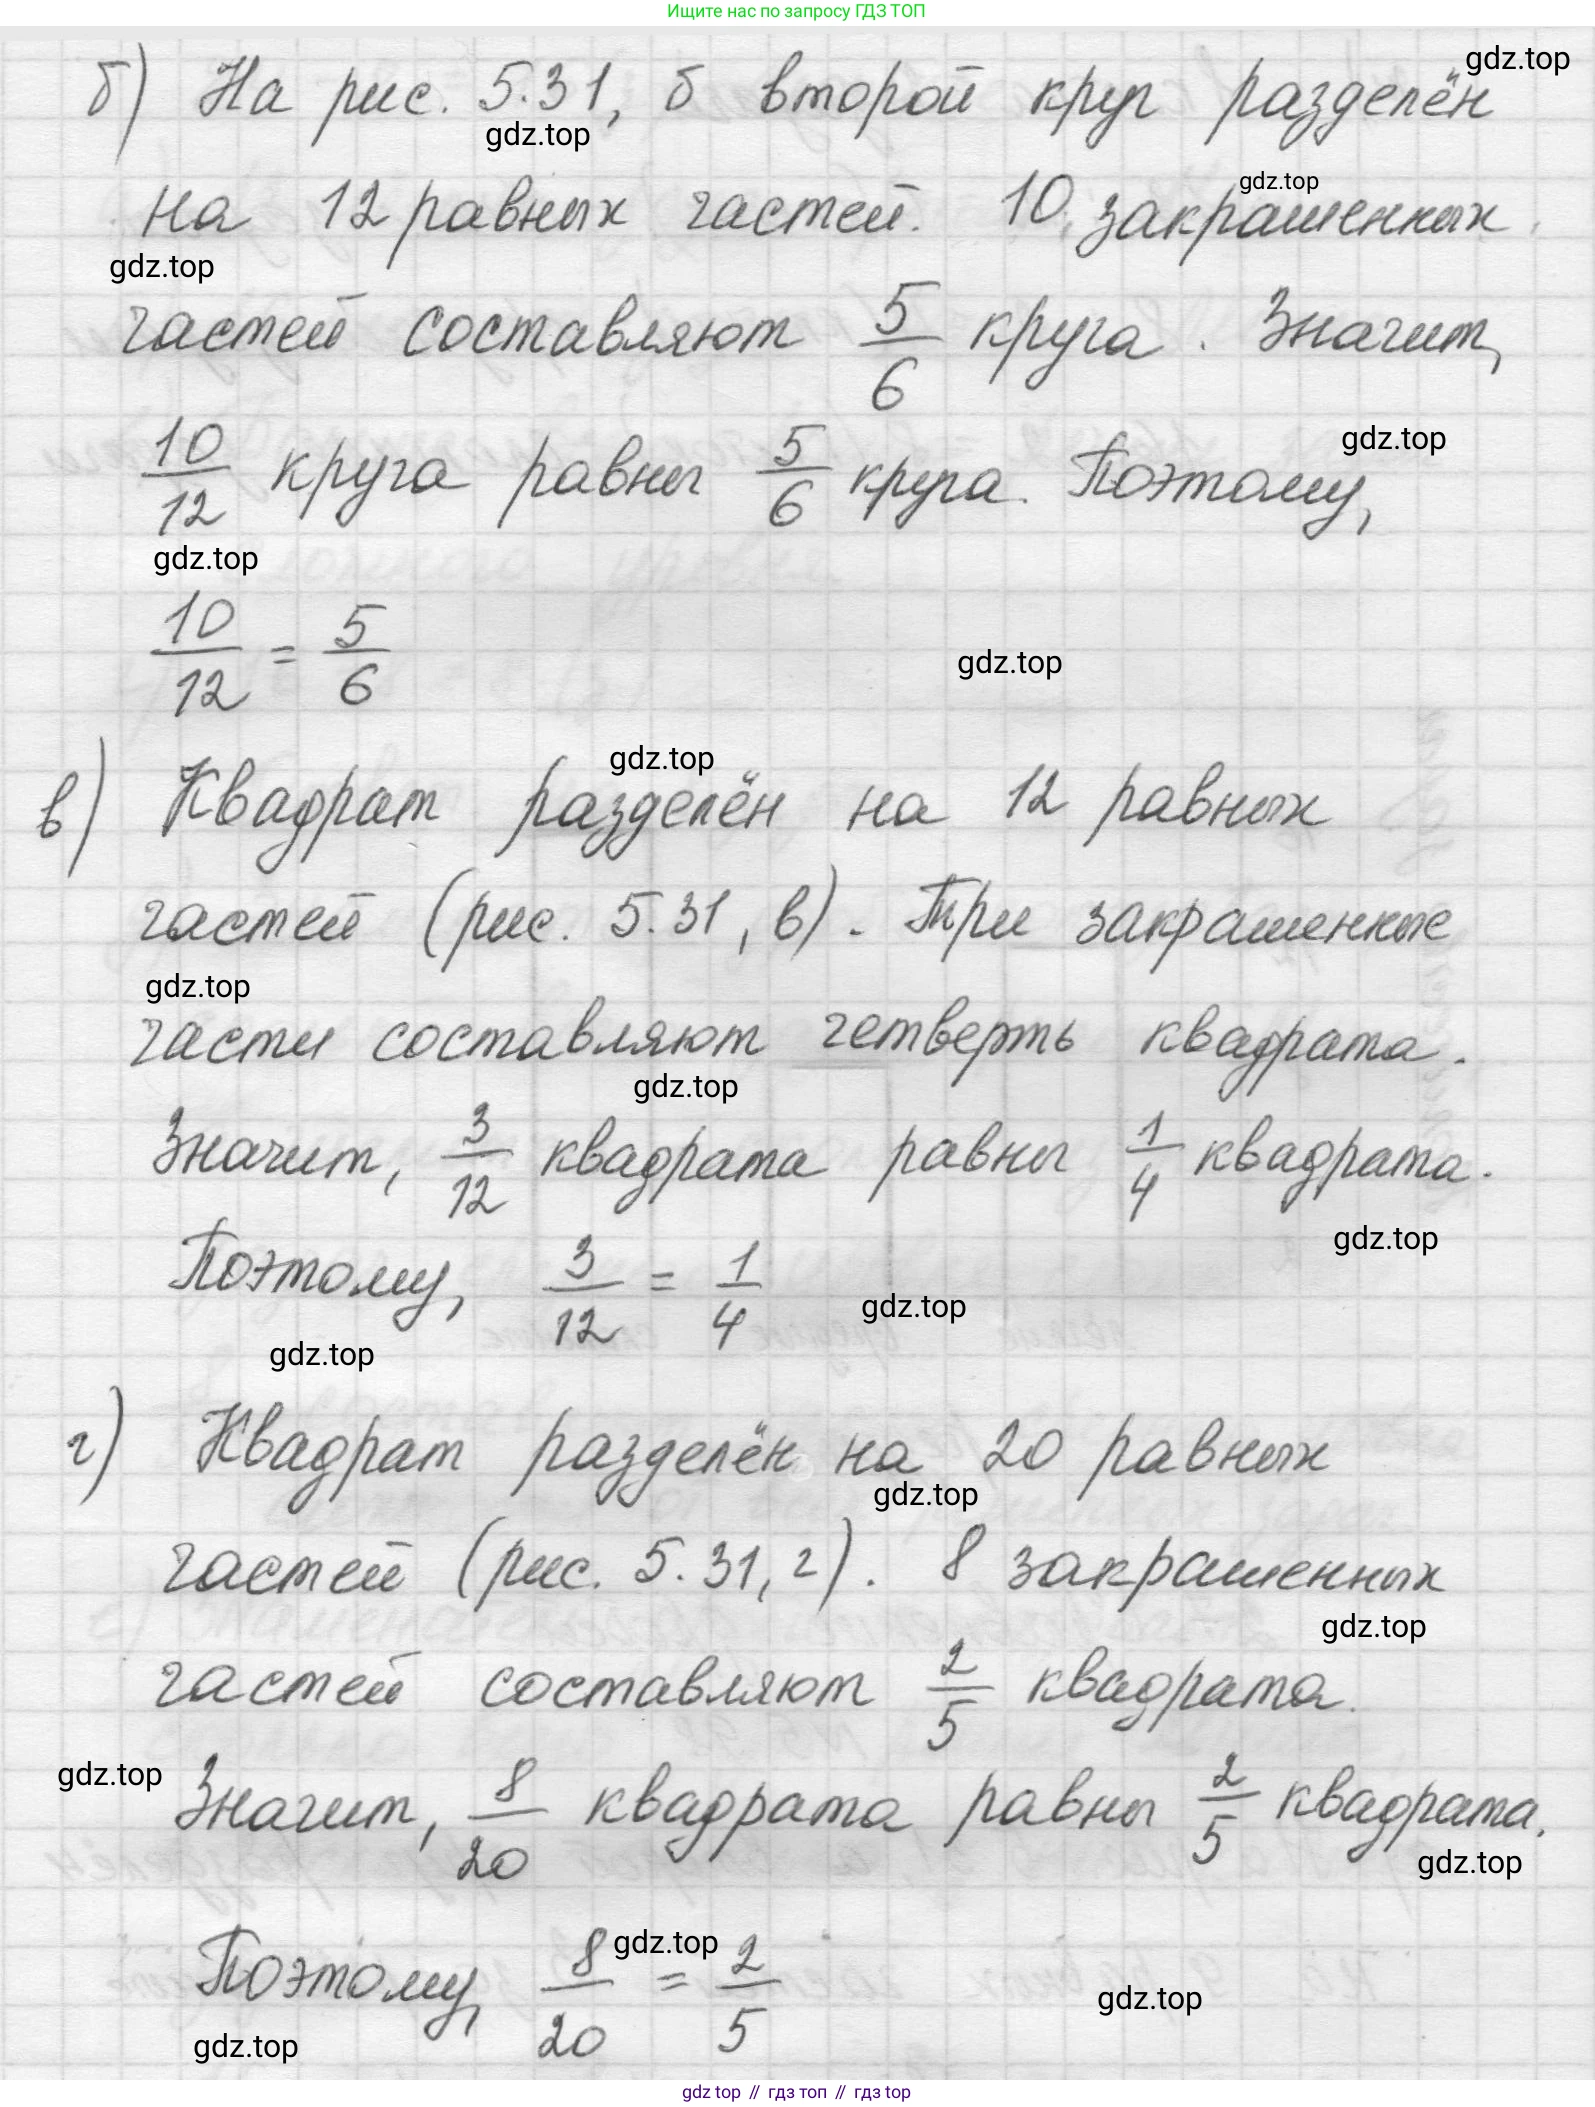 Ищите нас по запросу ГДЗ ТОП
gdz.top
б) На рис. 5.31, б второй круг разделён
gdz.top
gdz.top
на 12 равных частей. 10 закрашенных
gdz.top
частей составляют 5/6 круга. Значит,
gdz.top
10/12 круга равны 5/6 круга. Поэтому,
gdz.top
10/12 = 5/6
gdz.top
gdz.top
в) Квадрат разделён на 12 равных
частей (рис. 5.31, в). Три закрашенные
gdz.top
части составляют четверть квадрата.
gdz.top
Значит, 3/12 квадрата равны 1/4 квадрата.
gdz.top
Поэтому, 3/12 = 1/4
gdz.top
gdz.top
г) Квадрат разделён на 20 равных
gdz.top
частей (рис. 5.31, г). 8 закрашенных
gdz.top
частей составляют 2/5 квадрата.
gdz.top
Значит, 8/20 квадрата равны 2/5 квадрата.
gdz.top
gdz.top
Поэтому, 8/20 = 2/5
gdz.top
gdz.top
gdz top // гдз топ // gdz top